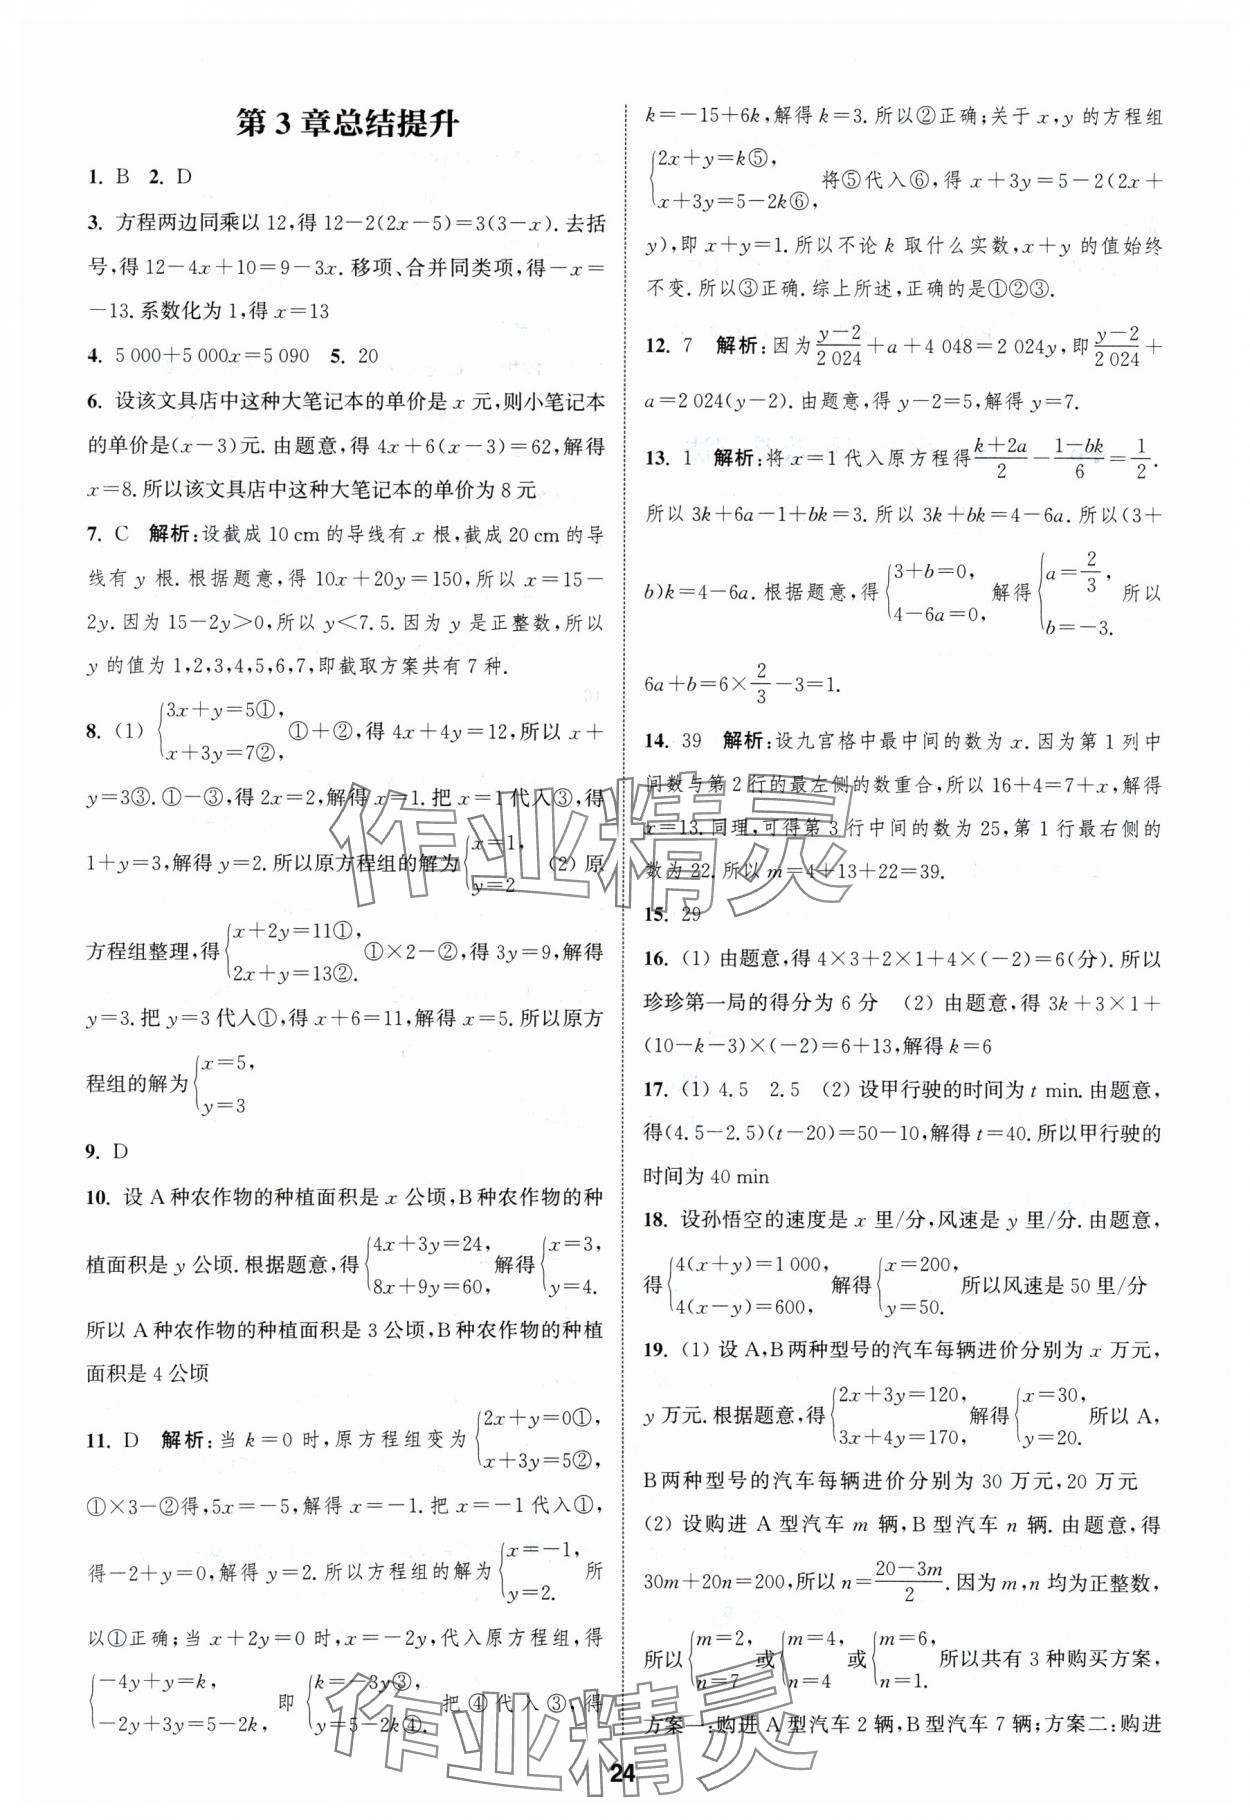 第3章总结提升
1. B 2. D
3. 方程两边同乘以12,得12-2(2x-5)=3(3-x).去括
号,得12-4x+10=9-3x.移项、合并同类项,得-x=
-13.系数化为1,得x=13
4. 5 000+5 000x=5 090 5. 20
6. 设该文具店中这种大笔记本的单价是x元,则小笔记本
的单价是(x-3)元.由题意,得4x+6(x-3)=62,解得
x=8.所以该文具店中这种大笔记本的单价为8元
7. C 解析:设截成10 cm的导线有x根,截成20 cm的导
线有y根.根据题意,得10x+20y=150,所以x=15-
2y.因为15-2y>0,所以y<7.5.因为y是正整数,所以
y的值为1,2,3,4,5,6,7,即截取方案共有7种.
8. (1) {3x+y=5①, x+3y=7②, ①+②,得4x+4y=12,所以x+
y=3③.①-③,得2x=2,解得x=1.把x=1代入③,得
1+y=3,解得y=2.所以原方程组的解为{x=1, y=2 (2) 原
方程组整理,得{x+2y=11①, 2x+y=13②. ①×2-②,得3y=9,解得
y=3.把y=3代入①,得x+6=11,解得x=5.所以原方
程组的解为{x=5, y=3
9. D
10. 设A种农作物的种植面积是x公顷,B种农作物的种
植面积是y公顷.根据题意,得{4x+3y=24, 8x+9y=60, 解得{x=3, y=4.
所以A种农作物的种植面积是3公顷,B种农作物的种植
面积是4公顷
11. D 解析:当k=0时,原方程组变为{2x+y=0①, x+3y=5②,
①×3-②得,5x=-5,解得x=-1.把x=-1代入①,
得-2+y=0,解得y=2.所以方程组的解为{x=-1, y=2. 所
以①正确;当x+2y=0时,x=-2y,代入原方程组,得
{-4y+y=k, -2y+3y=5-2k, 即{k=-3y③, y=5-2k④. 把④代入③,得
k=-15+6k,解得k=3.所以②正确;关于x,y的方程组
{2x+y=k⑤, x+3y=5-2k⑥, 将⑤代入⑥,得x+3y=5-2(2x+
y),即x+y=1.所以不论k取什么实数,x+y的值始终
不变.所以③正确.综上所述,正确的是①②③.
12. 7 解析:因为(y-2)/2 024+a+4 048=2 024y,即(y-2)/2 024+
a=2 024(y-2).由题意,得y-2=5,解得y=7.
13. 1 解析:将x=1代入原方程得(k+2a)/2-(1-bk)/6=1/2.
所以3k+6a-1+bk=3.所以3k+bk=4-6a.所以(3+
b)k=4-6a.根据题意,得{3+b=0, 4-6a=0, 解得{a=2/3, b=-3. 所以
6a+b=6×2/3-3=1.
14. 39 解析:设九宫格中最中间的数为x.因为第1列中
间数与第2行的最左侧的数重合,所以16+4=7+x,解得
x=13.同理,可得第3行中间的数为25,第1行最右侧的
数为22.所以m=4+13+22=39.
15. 29
16. (1) 由题意,得4×3+2×1+4×(-2)=6(分).所以
珍珍第一局的得分为6分 (2) 由题意,得3k+3×1+
(10-k-3)×(-2)=6+13,解得k=6
17. (1) 4.5 2.5 (2) 设甲行驶的时间为t min.由题意,
得(4.5-2.5)(t-20)=50-10,解得t=40.所以甲行驶的
时间为40 min
18. 设孙悟空的速度是x里/分,风速是y里/分.由题意,
得{4(x+y)=1 000, 4(x-y)=600, 解得{x=200, y=50. 所以风速是50里/分
19. (1) 设A,B两种型号的汽车每辆进价分别为x万元,
y万元.根据题意,得{2x+3y=120, 3x+4y=170, 解得{x=30, y=20. 所以A,
B两种型号的汽车每辆进价分别为30万元,20万元
(2) 设购进A型汽车m辆,B型汽车n辆.由题意,得
30m+20n=200,所以n=(20-3m)/2.因为m,n均为正整数,
所以{m=2, n=7 或{m=4, n=4 或{m=6, n=1. 所以共有3种购买方案,
方案一:购进A型汽车2辆,B型汽车7辆;方案二:购进
24
作业精灵
作业精灵